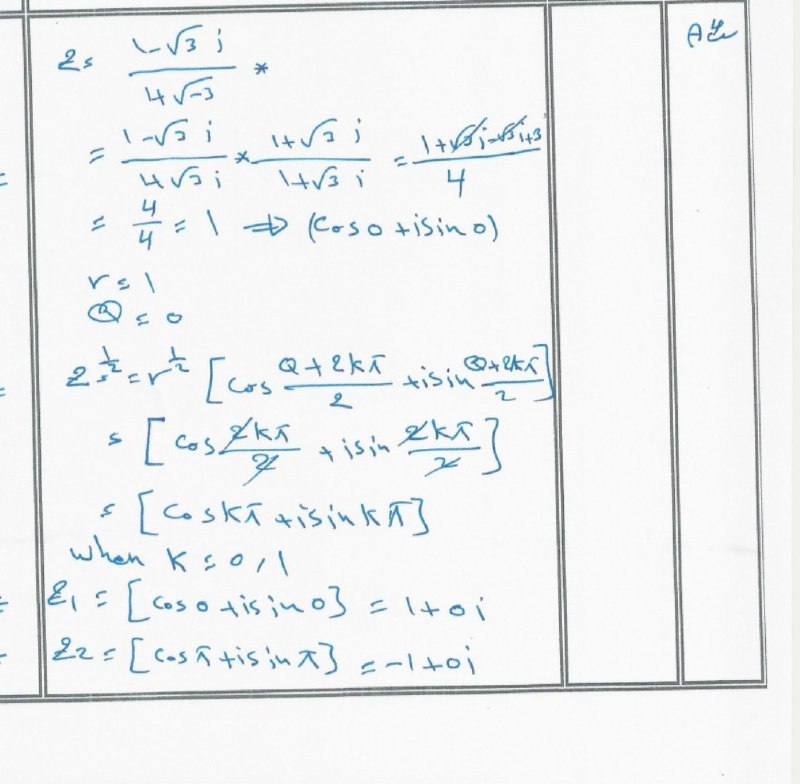 Z = (1-√3 i)/(4√-3) *
= (1-√3 i)/(4√3 i) * (1+√3 i)/(1+√3 i) = (1+√3 i-√3 i+3)/4
= 4/4 = 1 ⇒ (cos 0 + i sin 0)
r = 1
Q = 0
Z^(1/2) = r^(1/2) [cos (Q+2kπ)/2 + i sin (Q+2kπ)/2]
= [cos 2kπ/2 + i sin 2kπ/2]
= [cos kπ + i sin kπ]
when k = 0, 1
Z1 = [cos 0 + i sin 0] = 1+0i
Z2 = [cos π + i sin π] = -1+0i